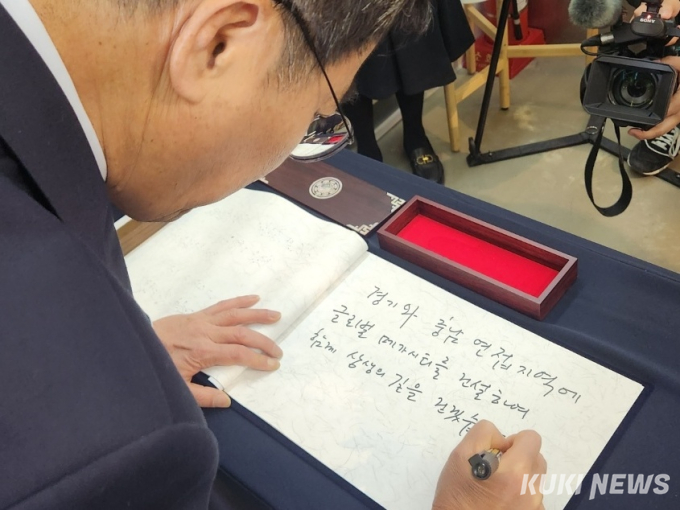 경기와 충남 연접지역에
글로벌 메가시티를 건설하여
함께 상생의 길을 걷겠습
KUKI NEWS